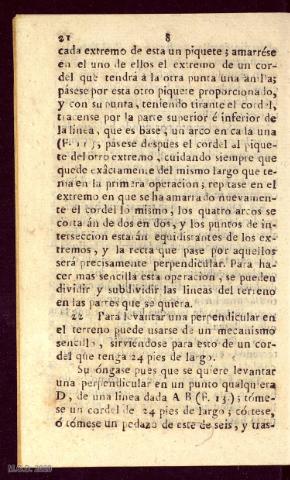 21 8
cada extremo de esta un piquete; amarrése
en el uno de ellos el extremo de un cor-
del que tendrá á la otra punta una anilla;
pásese por esta otro piquete proporcionado,
y con su punta, teniendo tirante el cordel,
tracense por la parte superior é inferior de
la linea, que es base, un arco en cada una
(F. 11), pásese despues el cordel al pique-
te del otro extremo, cuidando siempre que
quede exâctamente del mismo largo que te-
nia en la primera operacion; repitase en el
extremo en que se ha amarrado nuevamen-
te el cordel lo mismo, los quatro arcos se
cortarán de dos en dos, y los puntos de in-
terseccion estarán equidistantes de los ex-
tremos, y la recta que pase por aquellos
será precisamente perpendicular. Para ha-
cer mas sencilla esta operacion, se pueden
dividir y subdividir las lineas del terreno
en las partes que se quiera.
22 Para levantar una perpendicular en
el terreno puede usarse de un mecanismo
sencillo, sirviéndose para esto de un cor-
del que tenga 24 pies de largo.
Supóngase pues que se quiere levantar
una perpendicular en un punto qualquiera
D, de una linea dada A B (F. 13.); tóme-
se un cordel de 24 pies de largo; córtese,
ó tómese un pedazo de este de seis, y tras-